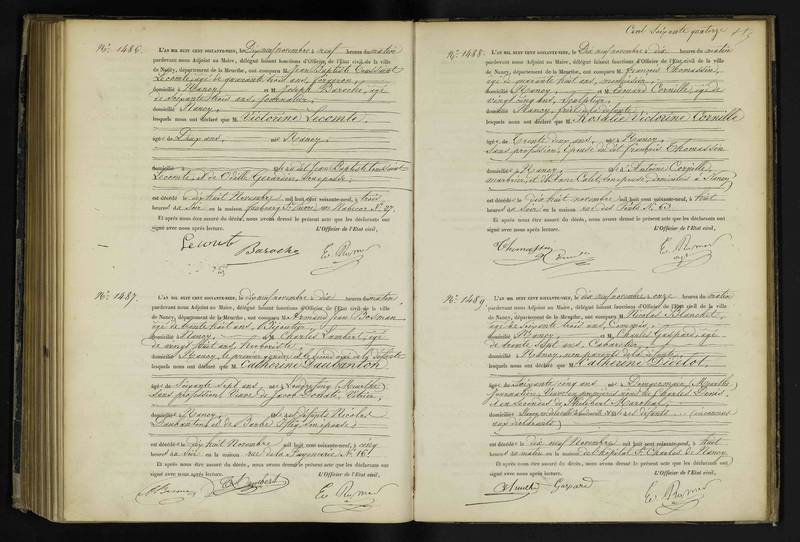 No. 1486. L'AN MIL HUIT CENT SOIXANTE-NEUF, le Dix neuf novembre à neuf heures du matin
pardevant nous Adjoint au Maire, délégué faisant fonctions d'Officier de l'Etat civil de la ville
de Nancy, département de la Meurthe, ont comparu M. Jean Baptiste Toussaint
Lecomte, âgé de quarante trois ans, forgeron,
domicilié à Nancy, et M. Joseph Baroche, âgé
de soixante trois ans, journalier,
domicilié à Nancy,
lesquels nous ont déclaré que M. Victorine Lecomte,
âgée de Deux ans, née à Nancy,
domiciliée à fille du dit Jean Baptiste Toussaint
Lecomte, et de Odille Gérardin, son épouse
est décédée le dix huit Novembre mil huit cent soixante-neuf, à trois
heures du Soir en la maison faubourg St. Pierre, No. 27.
Et après nous être assuré du décès, nous avons dressé le présent acte que les déclarants ont
signé avec nous après lecture. L'Officier de l'Etat civil,
Lecomte
Baroche
No. 1487. L'AN MIL HUIT CENT SOIXANTE-NEUF, le dix neuf novembre à dix heures du matin,
pardevant nous Adjoint au Maire, délégué faisant fonctions d'Officier de l'Etat civil de la ville
de Nancy, département de la Meurthe, ont comparu M. Armand Jean Bosman
âgé de trente huit ans, Bijoutier,
domicilié à Nancy, et M. Charles Lambert, âgé
de vingt huit ans, Herboriste,
domicilié à Nancy, le premier gendre et le second ami de la défunte
lesquels nous ont déclaré que M. Catherine Daubanton
âgée de Soixante sept ans, née à (Meurthe)
sans profession, Veuve de Jacob Donati, Vitrier,
domiciliée à Nancy, fille des défunts Nicolas
Daubanton et de Barbe son épouse
est décédée le dix huit Novembre mil huit cent soixante-neuf, à cinq
heures du soir en la maison rue de la Fayencerie No. 16.
Et après nous être assuré du décès, nous avons dressé le présent acte que les déclarants ont
signé avec nous après lecture. L'Officier de l'Etat civil,
Cent Soixante quatorze
No. 1488. L'AN MIL HUIT CENT SOIXANTE-NEUF, le Dix neuf novembre à dix heures du matin
pardevant nous Adjoint au Maire, délégué faisant fonctions d'Officier de l'Etat civil de la ville
de Nancy, département de la Meurthe, ont comparu M. François Thomassin,
âgé de quarante huit ans,
domicilié à Nancy, et M. Edmond Cornille, âgé de
vingt cinq ans, Sculpteur,
domicilié à Nancy, frère de la défunte
lesquels nous ont déclaré que M. Rosalie Victorine Cornille
âgée de Trente deux ans, née à Nancy,
sans profession, Epouse du dit François Thomassin
domiciliée à Nancy, fille d'Antoine Cornille,
marbrier, et d'Anne Colet, son épouse, domiciliés à Nancy
est décédée le dix huit novembre mil huit cent soixante-neuf, à huit
heures du Soir en la maison rue des Ponts No. 63
Et après nous être assuré du décès, nous avons dressé le présent acte que les déclarants ont
signé avec nous après lecture. L'Officier de l'Etat civil,
Thomassin
No. 1489. L'AN MIL HUIT CENT SOIXANTE-NEUF, le dix neuf novembre à onze heures du matin
pardevant nous Adjoint au Maire, délégué faisant fonctions d'Officier de l'Etat civil de la ville
de Nancy, département de la Meurthe, ont comparu M. Nicolas Blanchet,
âgé de Soixante trois ans, Commis,
domicilié à Nancy, et M. Charles Gaspard, âgé
de trente sept ans, Cabaretier,
domicilié à Nancy, non parents de la défunte,
lesquels nous ont déclaré que M. Catherine Didelot,
âgée de Soixante cinq ans, née à Dommartemont (Meurthe)
journalière, Veuve en premières noces de Charles Denis,
et en secondes de Philibert Maréchal,
domiciliée à Nancy, fille des défunts (inconnus
aux déclarants)
est décédée le dix neuf Novembre mil huit cent soixante-neuf, à huit
heures du matin en la maison de l'hôpital St. Charles de Nancy
Et après nous être assuré du décès, nous avons dressé le présent acte que les déclarants ont
signé avec nous après lecture. L'Officier de l'Etat civil,
Gaspard